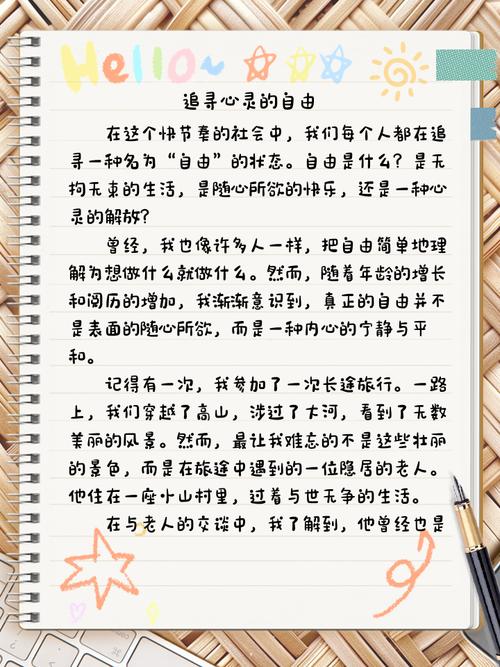 Hello~
追寻心灵的自由
在这个快节奏的社会中，我们每个人都在追
寻一种名为“自由”的状态。自由是什么？是无
拘无束的生活，是随心所欲的快乐，还是一种心
灵的解放？
曾经，我也像许多人一样，把自由简单地理
解为想做什么就做什么。然而，随着年龄的增长
和阅历的增加，我渐渐意识到，真正的自由并不
是表面的随心所欲，而是一种内心的宁静与平
和。
记得有一次，我参加了一次长途旅行。一路
上，我们穿越了高山，涉过了大河，看到了无数
美丽的风景。然而，最让我难忘的不是这些壮丽
的景色，而是在旅途中遇到的一位隐居的老人。
他住在一座小山村里，过着与世无争的生活。
在与老人的交谈中，我了解到，他曾经也是